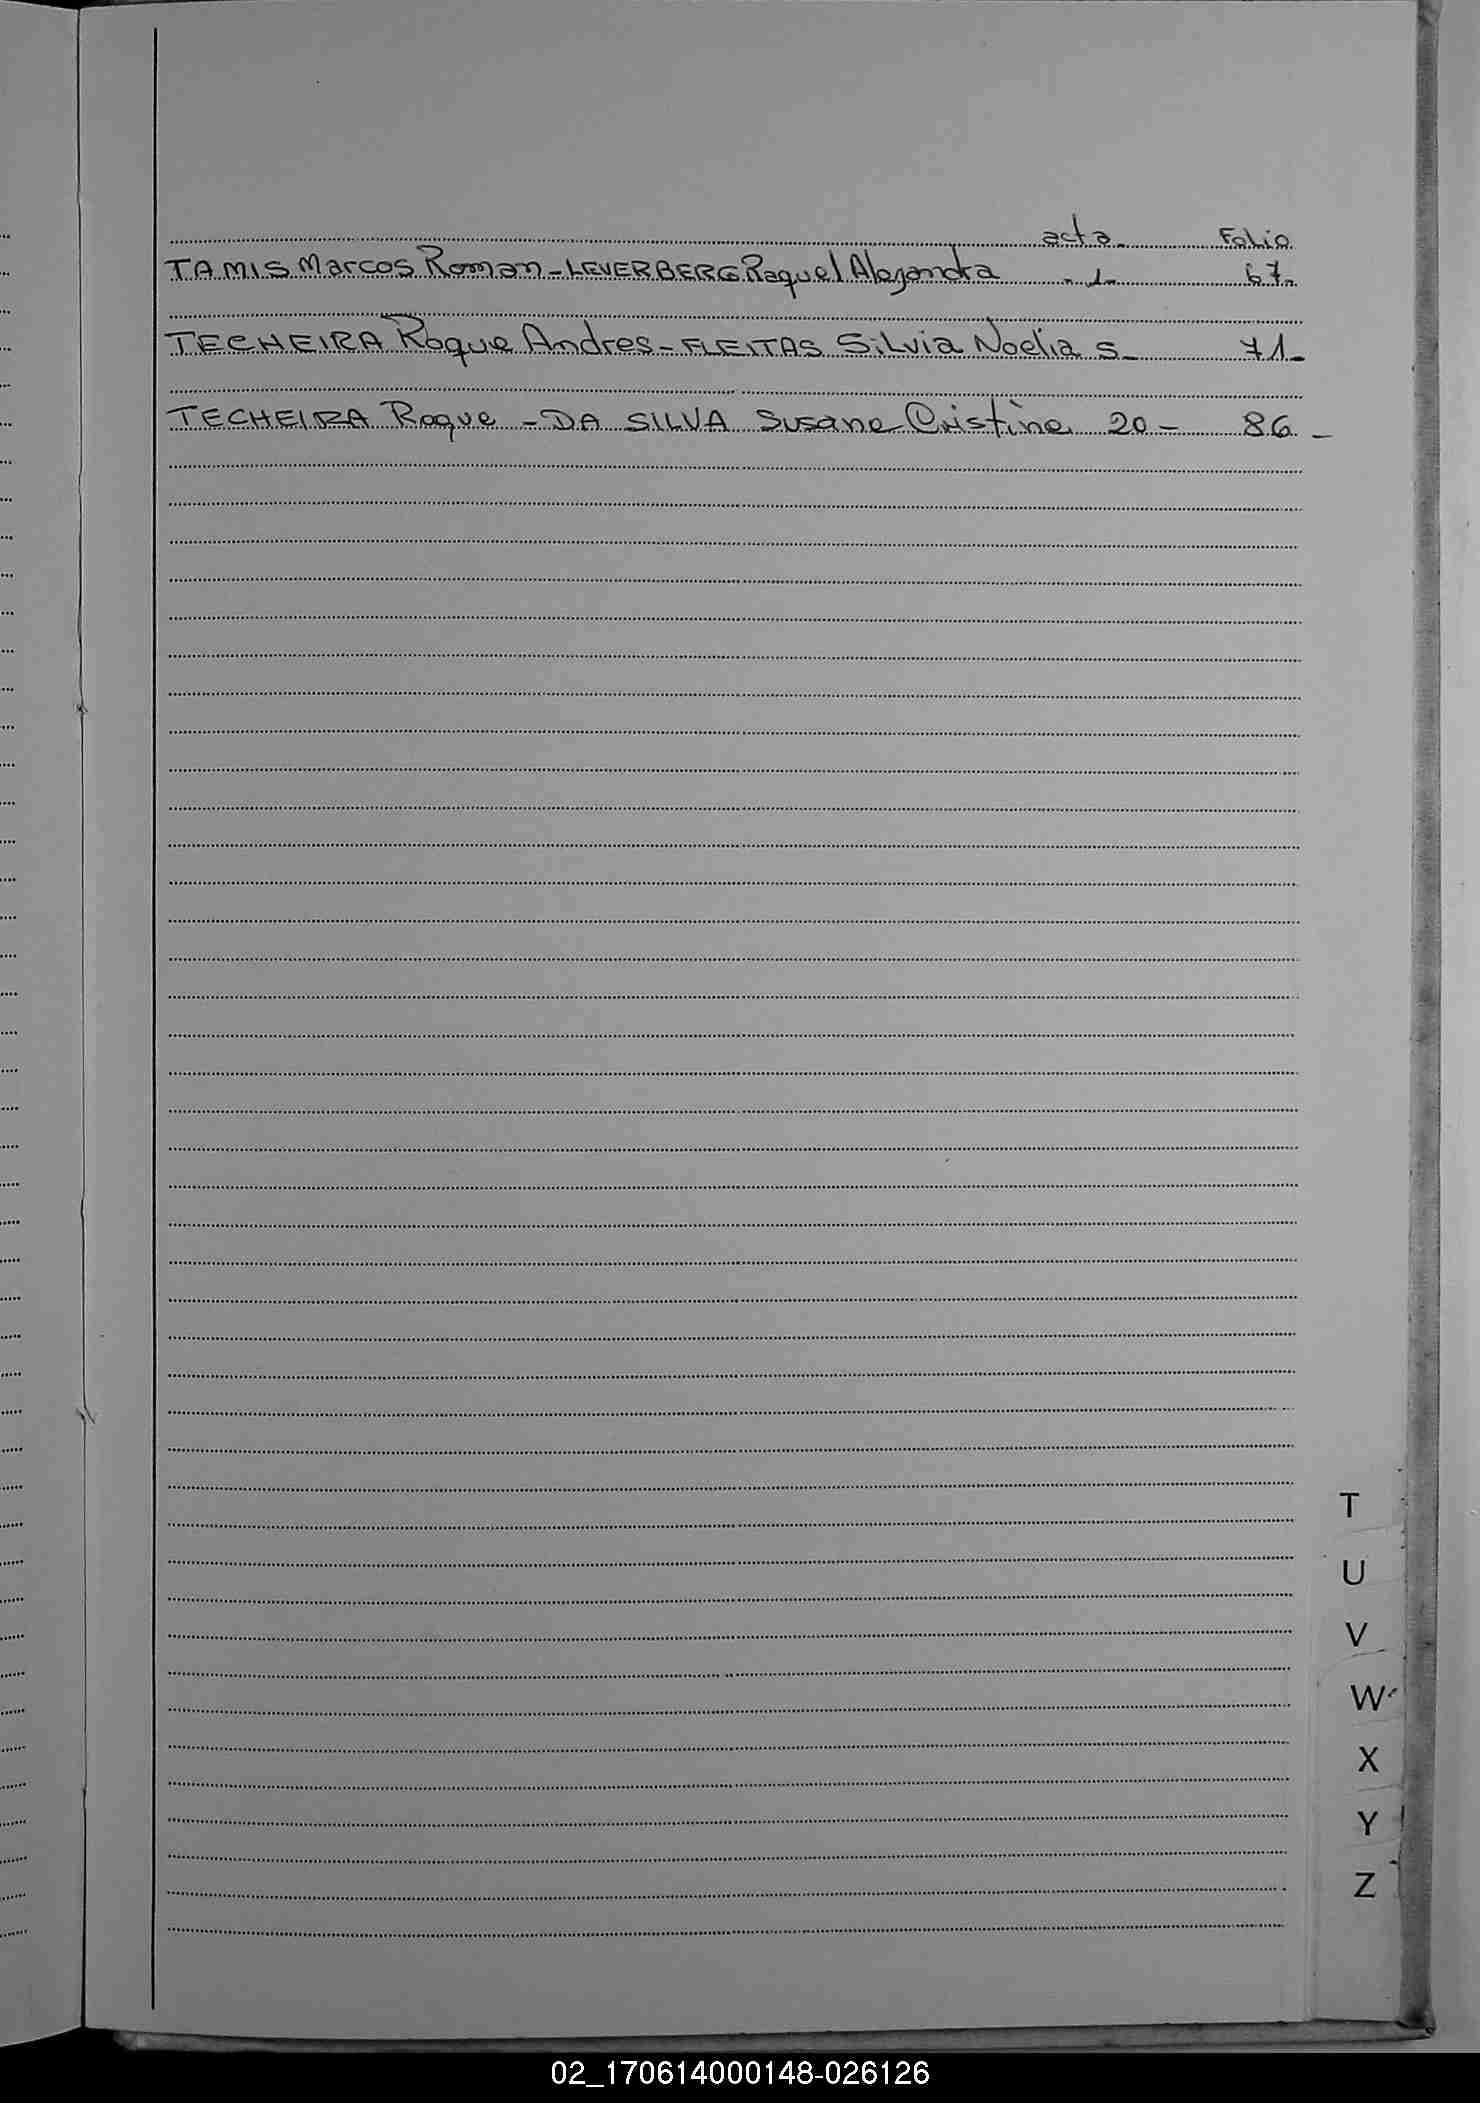 acta Folio
TAMIS Marcos Roman - LEVERBERG Raquel Alejandra - 1 - 67-
TECHEIRA Roque Andres - FLEITAS Silvia Noelia 5- 71-
TECHEIRA Roque - DA SILVA Susana Cristina 20 - 86 -
T
U
V
W
X
Y
Z
02_170614000148-026126